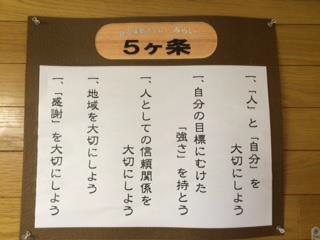 みらい
5ヶ条
一、「人」と「自分」を
大切にしよう
一、自分の目標にむけた
「強さ」を持とう
一、人としての信頼関係を
大切にしよう
一、地域を大切にしよう
一、「感謝」を大切にしよう